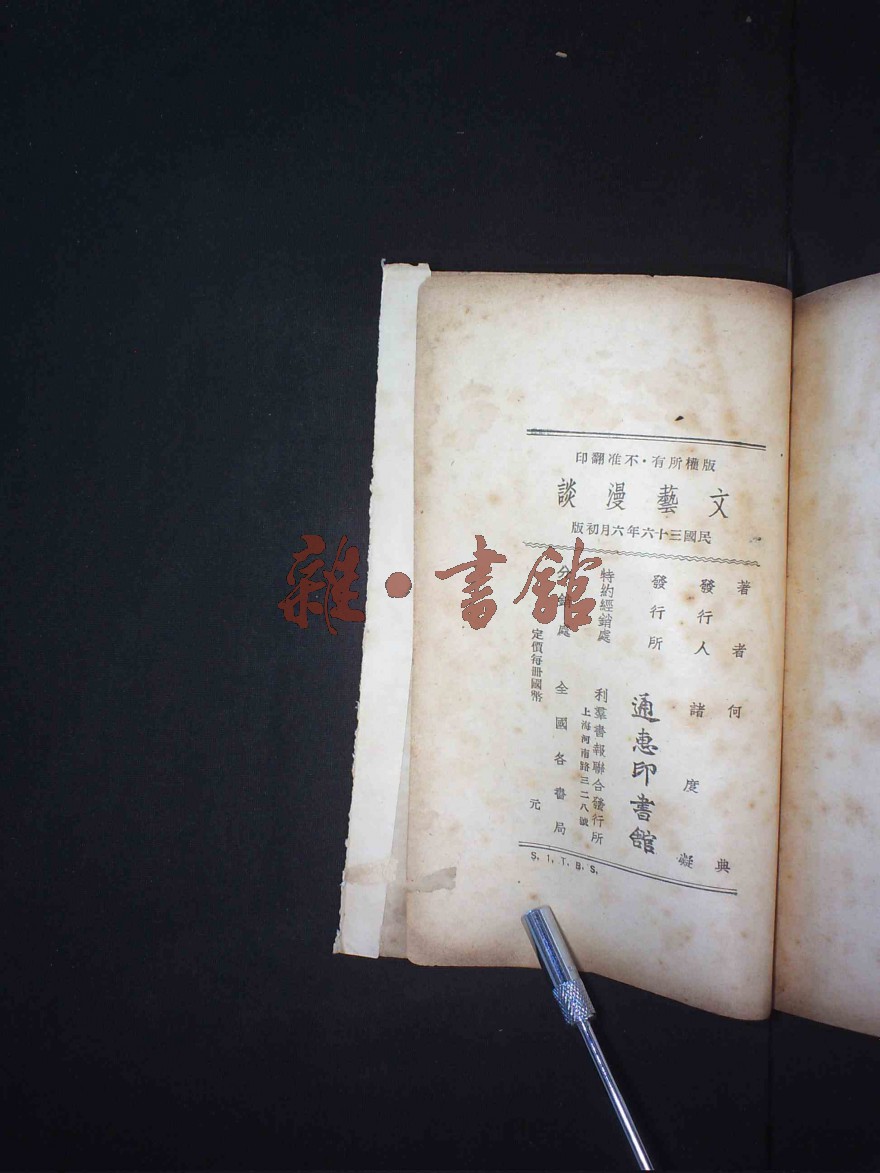 版權所有·不准翻印
文藝漫談
民國三十六年六月初版
著者 何典
發行人 諸度凝
發行所 通惠印書館
特約經銷處 利羣書報聯合發行所
上海河南路三二八號
分銷處 全國各書局
定價每冊國幣 元
S. 1, T. B. S.
雜·書館